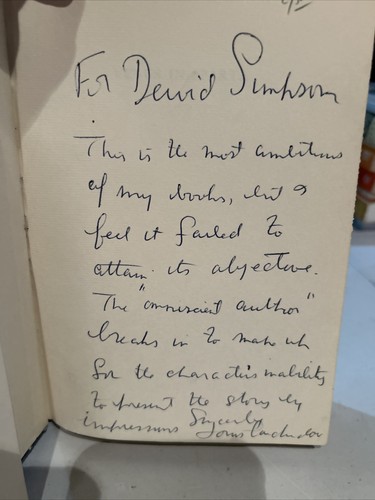 For David Simpson
This is the most ambitious
of my books, but I
feel it failed to
attain its objective.
The "omniscient author"
breaks in to make up
for the characters inability
to present the story by
impressions Sincerely
Yours